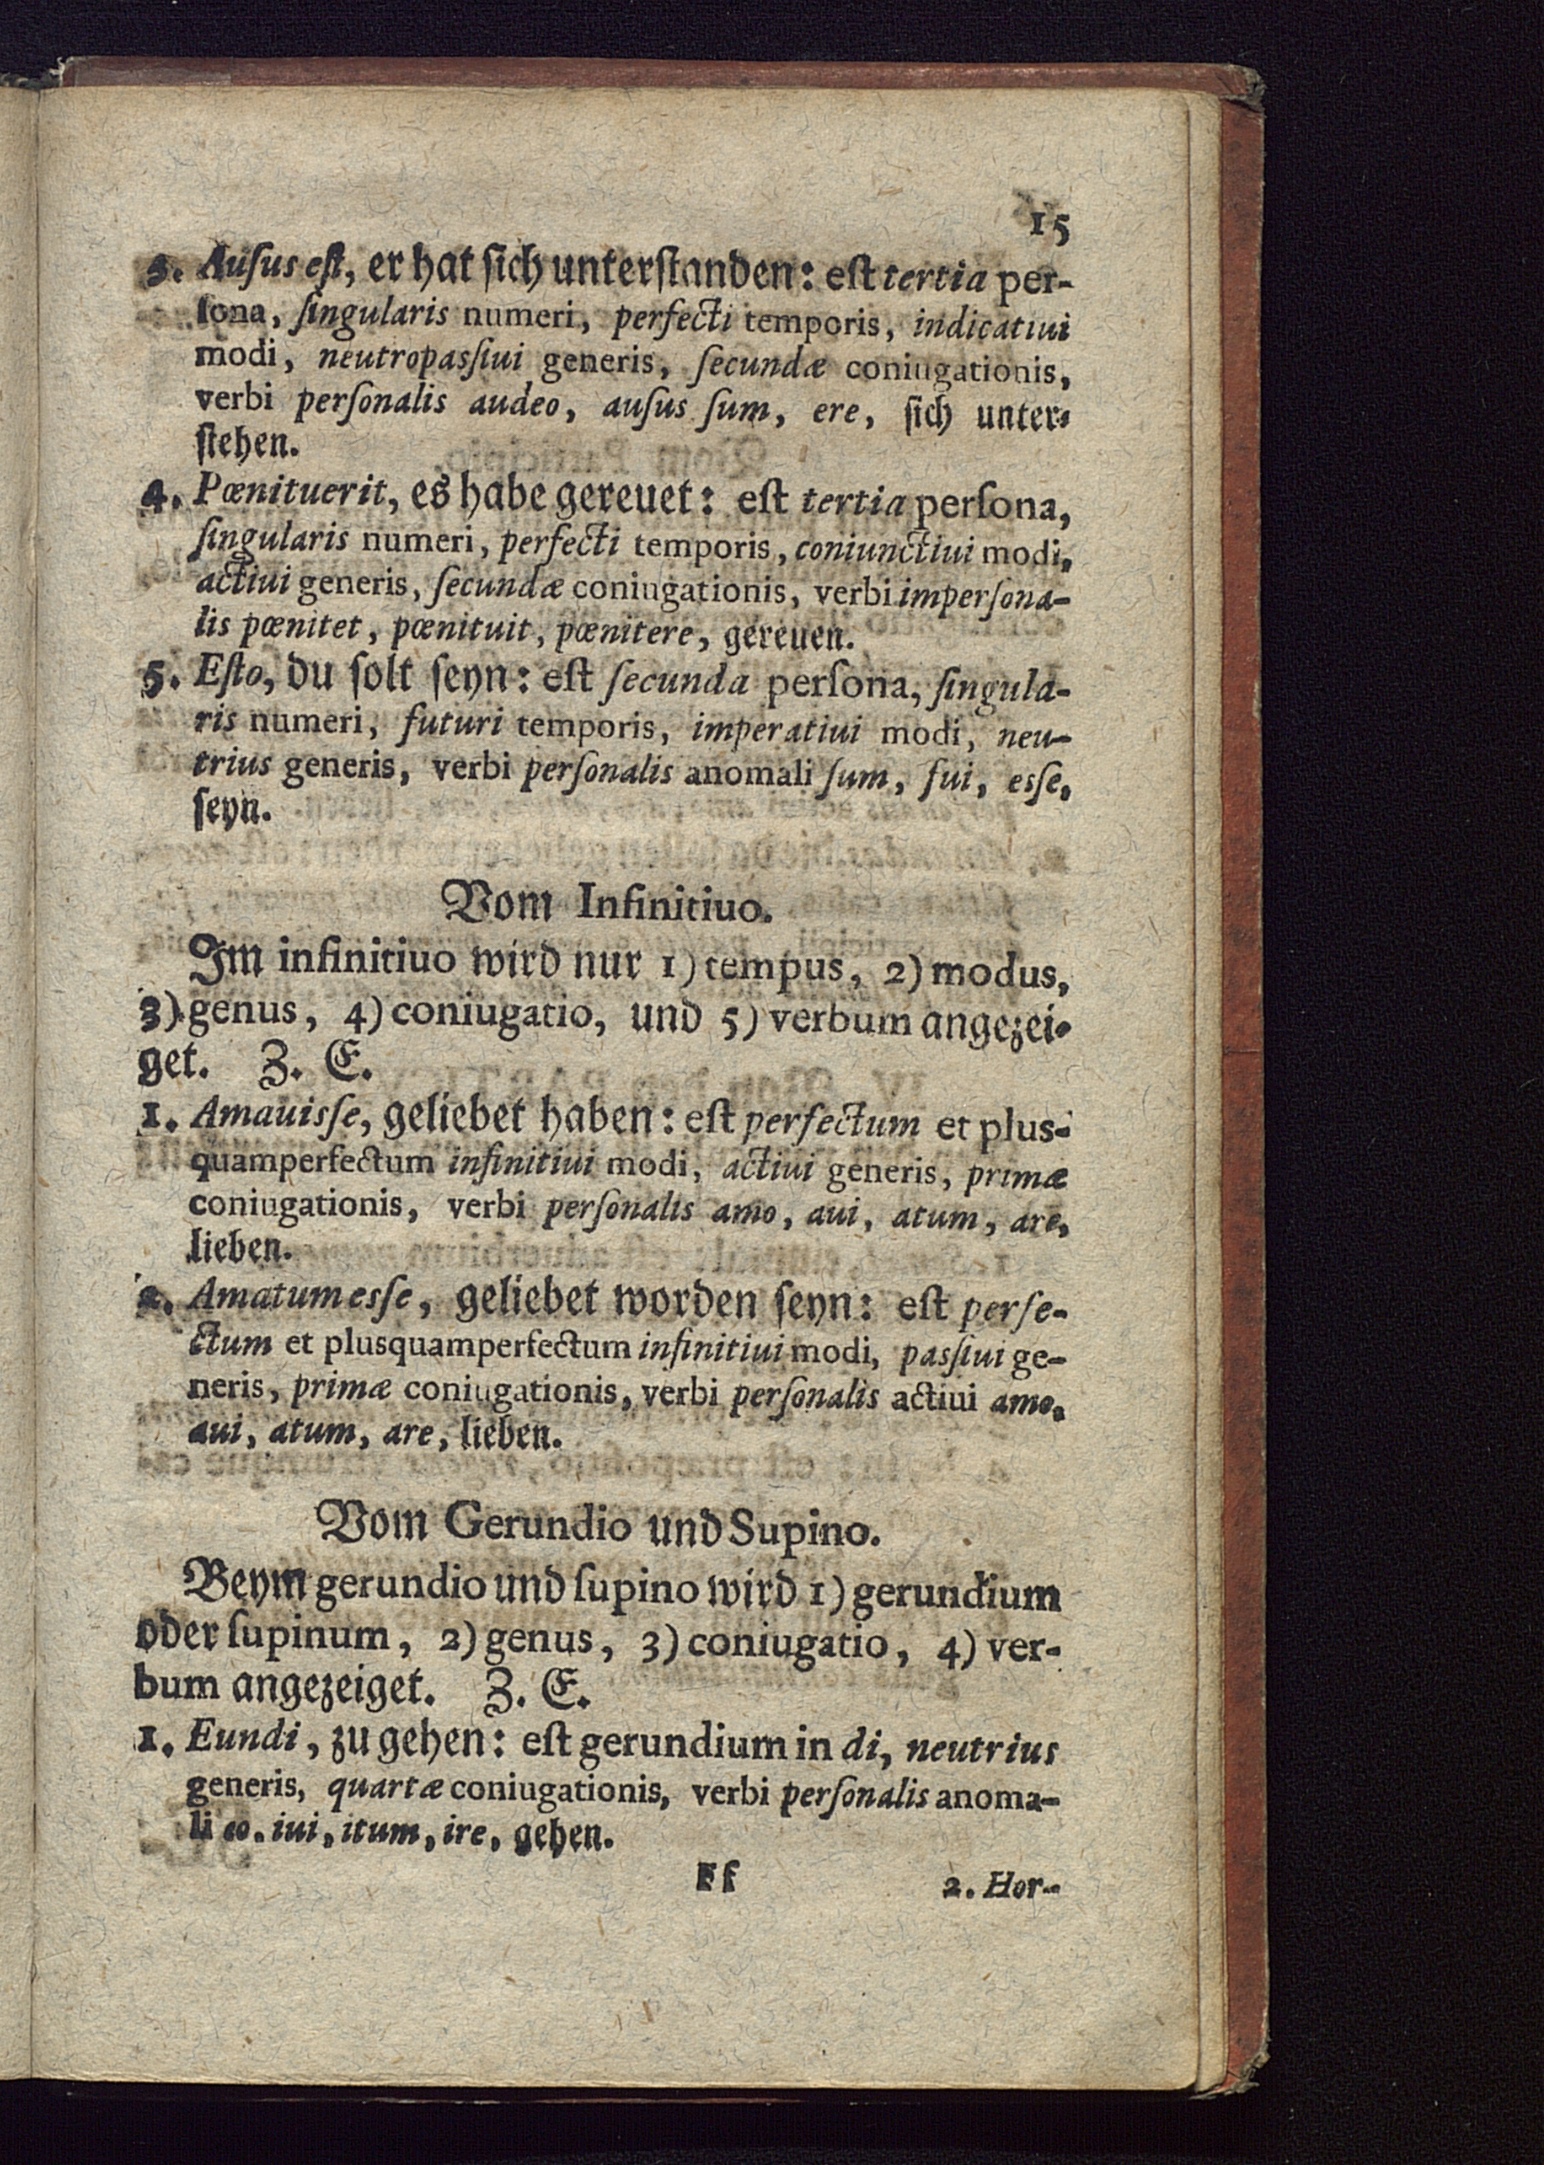 15
3. Auſus eſt, er hat ſich unterſtanden: eſt tertia per-
ſona, ſingularis numeri, perfecti temporis, indicatiui
modi, neutropaſsiui generis, ſecundæ coniugationis,
verbi perſonalis audeo, auſus ſum, ere, ſich unter-
ſtehen.
4. Pœnituerit, es habe gereuet: eſt tertia perſona,
ſingularis numeri, perfecti temporis, coniunctiui modi,
actiui generis, ſecundæ coniugationis, verbi imperſona-
lis pœnitet, pœnituit, pœnitere, gereuen.
5. Eſto, du ſolt ſeyn: eſt ſecunda perſona, ſingula-
ris numeri, futuri temporis, imperatiui modi, neu-
trius generis, verbi perſonalis anomali ſum, fui, esſe,
ſeyn.
Vom Infinitiuo.
Im infinitiuo wird nur 1) tempus, 2) modus,
3) genus, 4) coniugatio, und 5) verbum angezei-
get. Z. E.
1. Amauisſe, geliebet haben: eſt perfectum et plus-
quamperfectum infinitiui modi, actiui generis, primæ
coniugationis, verbi perſonalis amo, aui, atum, are,
lieben.
2. Amatum esſe, geliebet worden ſeyn: eſt perfe-
ctum et plusquamperfectum infinitiui modi, paſsiui ge-
neris, primæ coniugationis, verbi perſonalis actiui amo,
aui, atum, are, lieben.
Vom Gerundio und Supino.
Beym gerundio und ſupino wird 1) gerundium
oder ſupinum, 2) genus, 3) coniugatio, 4) ver-
bum angezeiget. Z. E.
1. Eundi, zu gehen: eſt gerundium in di, neutrius
generis, quartæ coniugationis, verbi perſonalis anoma-
li eo, iui, itum, ire, gehen.
Ff 2. Hor-